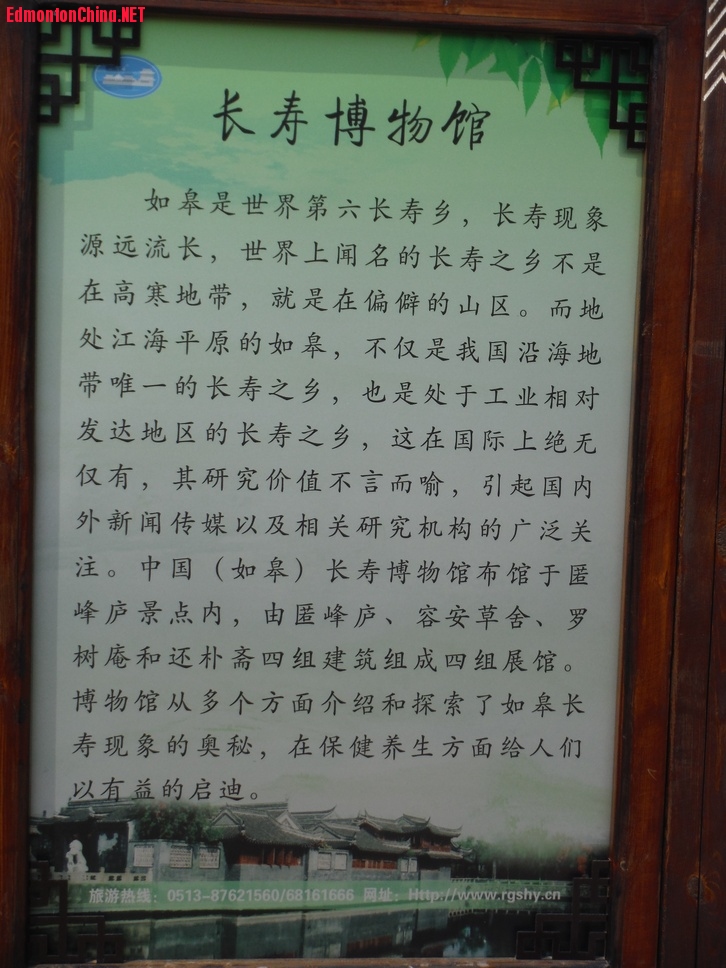 EdmontonChina.NET
长寿博物馆
如皋是世界第六长寿乡，长寿现象
源远流长，世界上闻名的长寿之乡不是
在高寒地带，就是在偏僻的山区。而地
处江海平原的如皋，不仅是我国沿海地
带唯一的长寿之乡，也是处于工业相对
发达地区的长寿之乡，这在国际上绝无
仅有，其研究价值不言而喻，引起国内
外新闻传媒以及相关研究机构的广泛关
注。中国（如皋）长寿博物馆布馆于匿
峰庐景点内，由匿峰庐、容安草舍、罗
树庵和还朴斋四组建筑组成四组展馆。
博物馆从多个方面介绍和探索了如皋长
寿现象的奥秘，在保健养生方面给人们
以有益的启迪。
旅游热线：0513-87621560/68161666 网址：Http://www.rgshy.cn